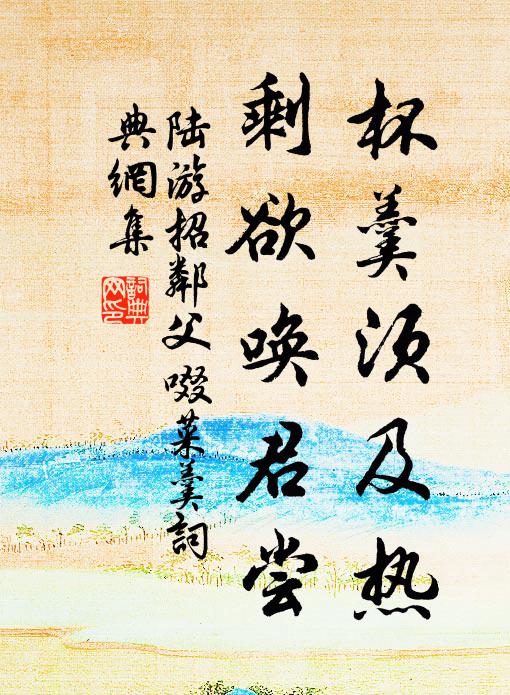 杯羹须及热
剩欲唤君尝
陆游招鄰父啜菜羹詞
典網集
詞典
网印